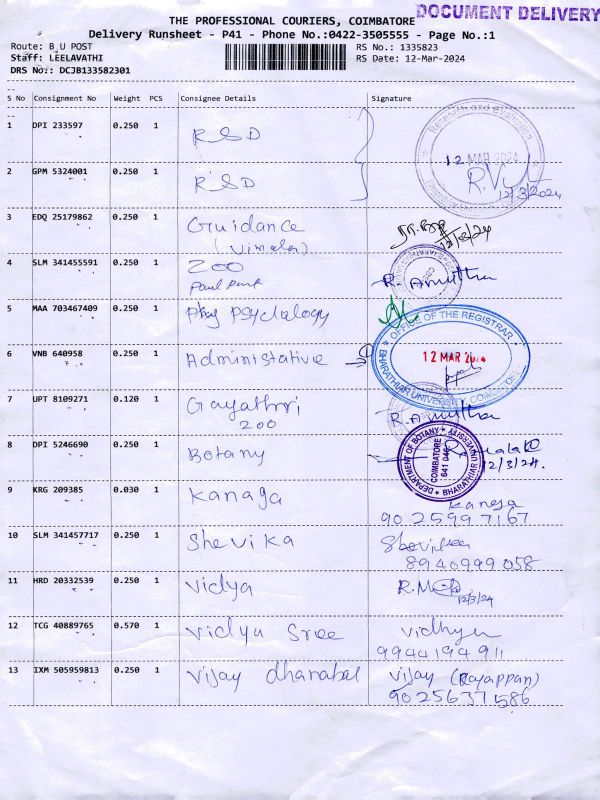 DOCUMENT DELIVERY
THE PROFESSIONAL COURIERS, COIMBATORE
Delivery Runsheet - P41 - Phone No.:0422-3505555 - Page No.:1
Route: B U POST
RS No.: 1335823
Staff: LEELAVATHI
RS Date: 12-Mar-2024
DRS No.: DCJB133582301
S No Consignment No Weight PCS Consignee Details Signature
1 DPI 233597 0.250 1 RSD
12 MAR 2024
2 GPM 5324001 0.250 1 RSD
12/3/2024
3 EDQ 25179862 0.250 1 Guidance
(Vimala)
4 SLM 341455591 0.250 1 ZOO R. Amutha
Paul
5 MAA 703467409 0.250 1 Phy Psychology
OFFICE OF THE REGISTRAR
12 MAR
BHARATHIAR UNIVERSITY, COIMBATORE
6 VNB 640958 0.250 1 Administative
7 UPT 8109271 0.120 1 Gayathri R. Amutha
ZOO
8 DPI 5246690 0.250 1 Botany
12/3/24.
DEPARTMENT OF BOTANY
COIMBATORE
641 046
BHARATHIAR UNIVERSITY
9 KRG 209385 0.030 1 Kanaga Kanaga
9025997167
10 SLM 341457717 0.250 1 Shevika Shevika
8940999058
11 HRD 20332539 0.250 1 Vidya
12/3/24
12 TCG 40889765 0.570 1 Vidya Sree Vidhya
9944194911
13 IXM 505959813 0.250 1 Vijay dhanabal Vijay (Rayappan)
9025637586